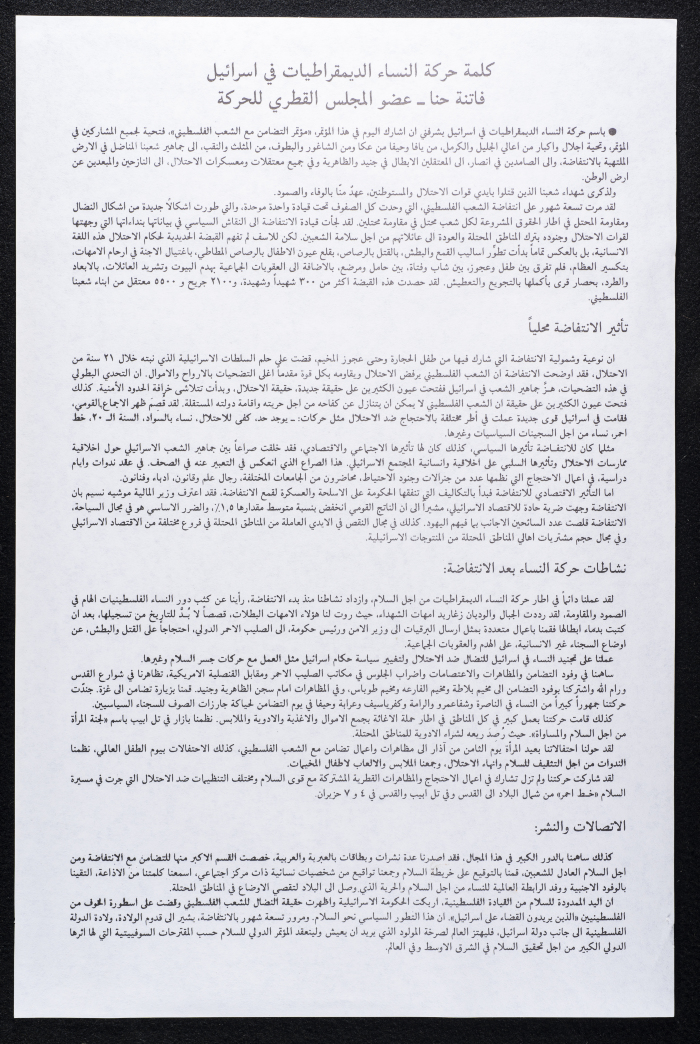 كلمة حركة النساء الديمقراطيات في اسرائيل
فاتنة حنا ــ عضو المجلس القطري للحركة
● باسم حركة النساء الديمقراطيات في اسرائيل يشرفني ان اشارك اليوم في هذا المؤتمر، «مؤتمر التضامن مع الشعب الفلسطيني»، فتحية لجميع المشاركين في
المؤتمر، وتحية اجلال واكبار من اعالي الجليل والكرمل، من يافا وحيفا من عكا ومن الشاغور والبطوف، من المثلث والنقب، الى جماهير شعبنا المناضل في الارض
الملتهبة بالانتفاضة، والى الصامدين في انصار، الى المعتقلين الابطال في جنيد والظاهرية وفي جميع معتقلات ومعسكرات الاحتلال، الى النازحين والمبعدين عن
ارض الوطن.
ولذكرى شهداء شعبنا الذين قتلوا بايدي قوات الاحتلال والمستوطنين، عهدٌ منّا بالوفاء والصمود.
لقد مرت تسعة شهور على انتفاضة الشعب الفلسطيني، التي وحدت كل الصفوف تحت قيادة واحدة موحدة، والتي طورت اشكالاً جديدة من اشكال النضال
ومقاومة المحتل في اطار الحقوق المشروعة لكل شعب محتل في مقاومة محتلين. لقد لجأت قيادة الانتفاضة الى النقاش السياسي في بياناتها بنداءاتها التي وجهتها
لقوات الاحتلال وجنوده بترك المناطق المحتلة والعودة الى عائلاتهم من اجل سلامة الشعبين. لكن للاسف لم تفهم القبضة الحديدية لحكام الاحتلال هذه اللغة
الانسانية، بل بالعكس تماماً بدأت تطوّر اساليب القمع والبطش، بالقتل بالرصاص، بقلع عيون الاطفال بالرصاص المطاطي، باغتيال الاجنة في ارحام الامهات،
بتكسير العظام، فلم تفرق بين طفل وعجوز، بين شاب وفتاة، بين حامل ومرضع، بالاضافة الى العقوبات الجماعية بهدم البيوت وتشريد العائلات، بالابعاد
والطرد، بحصار قرى بأكملها بالتجويع والتعطيش. لقد حصدت هذه القبضة اكثر من ٣٠٠ شهيداً وشهيدة، و٢١٠٠ جريح و ٥٥٠٠ معتقل من ابناء شعبنا
الفلسطيني.
تأثير الانتفاضة محلياً
ان نوعية وشمولية الانتفاضة التي شارك فيها من طفل الحجارة وحتى عجوز المخيم، قضت على حلم السلطات الاسرائيلية الذي نبته خلال ٢١ سنة من
الاحتلال، فقد اوضحت الانتفاضة ان الشعب الفلسطيني يرفض الاحتلال ويقاومه بكل قوة مقدماً اغلى التضحيات بالارواح والاموال. ان التحدي البطولي
في هذه التضحيات، هزّ جماهير الشعب في اسرائيل ففتحت عيون الكثيرين على حقيقة جديدة، حقيقة الاحتلال، وبدأت تتلاشى خرافة الحدود الأمنية. كذلك
فتحت عيون الكثيرين على حقيقة ان الشعب الفلسطيني لا يمكن ان يتنازل عن كفاحه من اجل حريته واقامة دولته المستقلة. لقد قصم ظهر الاجماع القومي،
فقامت في اسرائيل قوى جديدة عملت في أطر مختلفة بالاحتجاج ضد الاحتلال مثل حركات: ـ يوجد حد، كفى للاحتلال، نساء بالسواد، السنة الـ ٢٠، خط
احمر، نساء من اجل السجينات السياسيات وغيرها.
مثلما كان للانتفاضة تأثيرها السياسي، كذلك كان لها تأثيرها الاجتماعي والاقتصادي، فقد خلقت صراعاً بين جماهير الشعب الاسرائيلي حول اخلاقية
ممارسات الاحتلال وتأثيرها السلبي على اخلاقية وانسانية المجتمع الاسرائيلي. هذا الصراع الذي انعكس في التعبير عنه في الصحف. في عقد ندوات وايام
دراسية، في اعمال الاحتجاج التي نظمها عدد من جنرالات وجنود الاحتياط، محاضرون من الجامعات المختلفة، رجال علم وقانون، ادباء وفنانون.
اما التأثير الاقتصادي للانتفاضة فبدأ بالتكاليف التي تنفقها الحكومة على الاسلحة والعسكرة لقمع الانتفاضة. فقد اعترف وزير المالية موشيه نسيم بان
الانتفاضة وجهت ضربة حادة للاقتصاد الاسرائيلي، مشيراً الى ان الناتج القومي انخفض بنسبة متوسط مقدارها ١,٥٪، والضرر الاساسي هو في مجال السياحة،
الانتفاضة قلصت عدد السائحين الاجانب بما فيهم اليهود. كذلك في مجال النقص في الايدي العاملة من المناطق المحتلة في فروع مختلفة من الاقتصاد الاسرائيلي
وفي مجال حجم مشتريات اهالي المناطق المحتلة من المنتوجات الاسرائيلية.
نشاطات حركة النساء بعد الانتفاضة:
لقد عملنا دائماً في اطار حركة النساء الديمقراطيات من اجل السلام، وازداد نشاطنا منذ بدء الانتفاضة، رأينا عن كثب دور النساء الفلسطينيات الهام في
الصمود والمقاومة، لقد رددت الجبال والوديان زغاريد امهات الشهداء، حيث روت لنا هؤلاء الامهات البطلات، قصصاً لا بُـدّ للتاريخ من تسجيلها، بعد ان
كتبت بدماء ابطالها فقمنا باعمال متعددة بمثل ارسال البرقيات الى وزير الامن ورئيس حكومة، الى الصليب الاحمر الدولي، احتجاجاً على القتل والبطش، عن
اوضاع السجناء غير الانسانية، على الهدم والعقوبات الجماعية.
عملنا على تجنيد النساء في اسرائيل للنضال ضد الاحتلال ولتغيير سياسة حكام اسرائيل مثل العمل مع حركات جسر السلام وغيرها.
ساهمنا في وفود التضامن والمظاهرات والاعتصامات واضراب الجلوس في مكاتب الصليب الاحمر ومقابل القنصلية الامريكية، تظاهرنا في شوارع القدس
ورام الله واشتركنا بوفود التضامن الى مخيم بلاطة ومخيم الفارعه ومخيم طوباس، وفي المظاهرات امام سجن الظاهرية وجنيد. قمنا بزيارة تضامن الى غزة. جندّت
حركتنا جمهوراً كبيراً من النساء في الناصرة وشفاعمرو والرامة وكفرياسيف وعرابة وحيفا في يوم التضامن لحياكة جارزات الصوف للسجناء السياسيين.
كذلك قامت حركتنا بعمل كبير في كل المناطق في اطار حملة الاغاثة بجمع الاموال والاغذية والادوية والملابس. نظمنا بازار في تل ابيب باسم «لجنة المرأة
من اجل السلام والمساواة». حيث رُصد ريعه لشراء الادوية للمناطق المحتلة.
لقد حولنا احتفالاتنا بعيد المرأة يوم الثامن من آذار الى مظاهرات واعمال تضامن مع الشعب الفلسطيني، كذلك الاحتفالات بيوم الطفل العالمي، نظمنا
الندوات من اجل التثقيف للسلام وانهاء الاحتلال، وجمعنا الملابس والالعاب لاطفال المخيمات.
لقد شاركت حركتنا ولم تزل تشارك في اعمال الاحتجاج والمظاهرات القطرية المشتركة مع قوى السلام ومختلف التنظيمات ضد الاحتلال التي جرت في مسيرة
السلام «خـط احمر» من شمال البلاد الى القدس وفي تل ابيب والقدس في ٤ و ٧ حزيران.
الاتصالات والنشر:
كذلك ساهمنا بالدور الكبير في هذا المجال، فقد اصدرنا عدة نشرات وبطاقات بالعبرية والعربية، خصصت القسم الاكبر منها للتضامن مع الانتفاضة ومن
اجل السلام العادل للشعبين، قمنا بالتوقيع على خريطة السلام وجمعنا تواقيع من شخصيات نسائية ذات مركز اجتماعي، اسمعنا كلمتنا من الاذاعة، التقينا
بالوفود الاجنبية ووفد الرابطة العالمية للنساء من اجل السلام والحرية الذي وصل الى البلاد لتقصي الاوضاع في المناطق المحتلة.
ان اليد الممدودة للسلام من القيادة الفلسطينية، اربكت الحكومة الاسرائيلية واظهرت حقيقة النضال للشعب الفلسطيني وقضت على اسطورة الخوف من
الفلسطينيين والذين يريدون القضاء على اسرائيل». ان هذا التطور السياسي نحو السلام. ومرور تسعة شهور بالانتفاضة، يشير الى قدوم الولادة، ولادة الدولة
الفلسطينية الى جانب دولة اسرائيل، فليهتز العالم لصرخة المولود الذي يريد ان يعيش ولينعقد المؤتمر الدولي للسلام حسب المقترحات السوفييتية التي لها اثرها
الدولي الكبير من اجل تحقيق السلام في الشرق الاوسط وفي العالم.